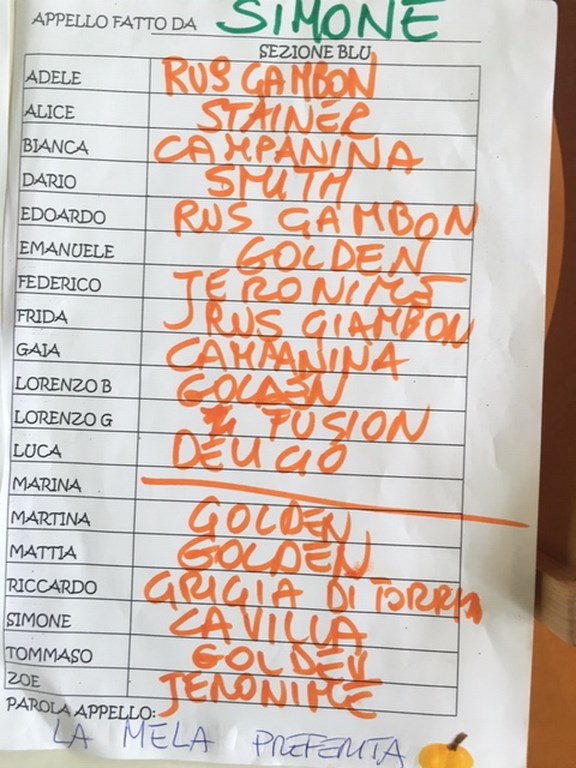 APPELLO FATTO DA SIMONE
SEZIONE BLU
ADELE RUS GAMBON
ALICE STAINER
BIANCA CAMPANINA
DARIO SMITH
EDOARDO RUS GAMBON
EMANUELE GOLDEN
FEDERICO JERONIME
FRIDA RUS GIAMBON
GAIA CAMPANINA
LORENZO B GOLDEN
LORENZO G FUSION
LUCA
MARINA
MARTINA GOLDEN
MATTIA GOLDEN
RICCARDO GRIGIA DI TORRIA
SIMONE CAVILLA
TOMMASO GOLDEN
ZOE JERONIME
PAROLA APPELLO:
LA MELA PREFERITA